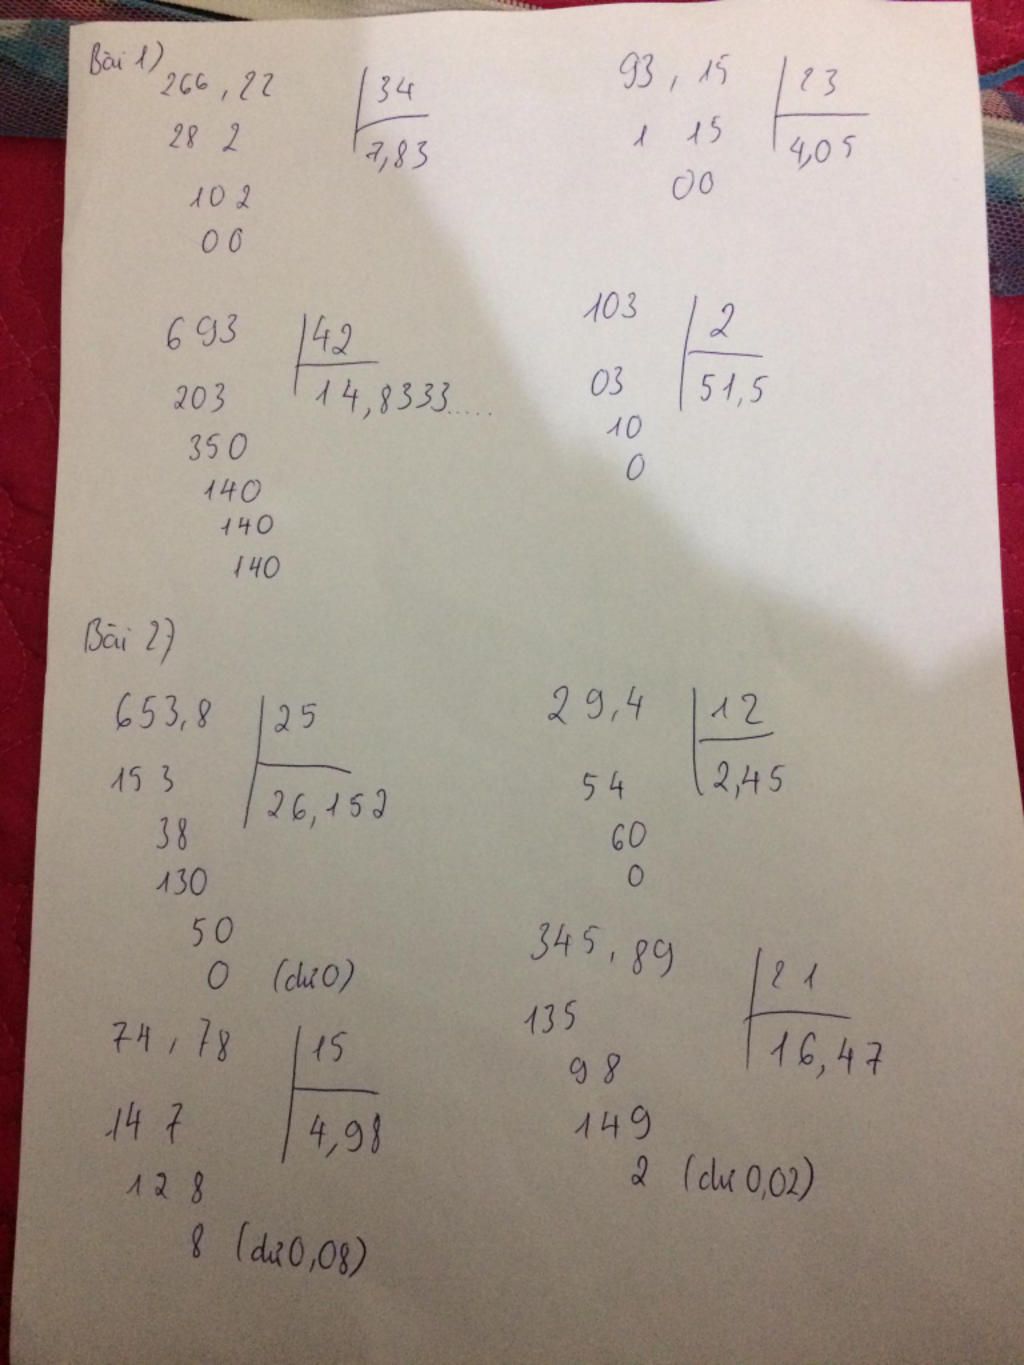 Bài 1)
266,22 34
28 2 7,83
102
00
93,15 23
1 15 4,05
00
693 42
203 14,8333.....
350
140
140
140
103 2
03 51,5
10
0
Bài 2)
653,8 25
153 26,152
38
130
50
0 (dư 0)
29,4 12
54 2,45
60
0
74,78 15
14 7 4,98
12 8
8 (dư 0,08)
345,89 21
135 16,47
98
149
2 (dư 0,02)